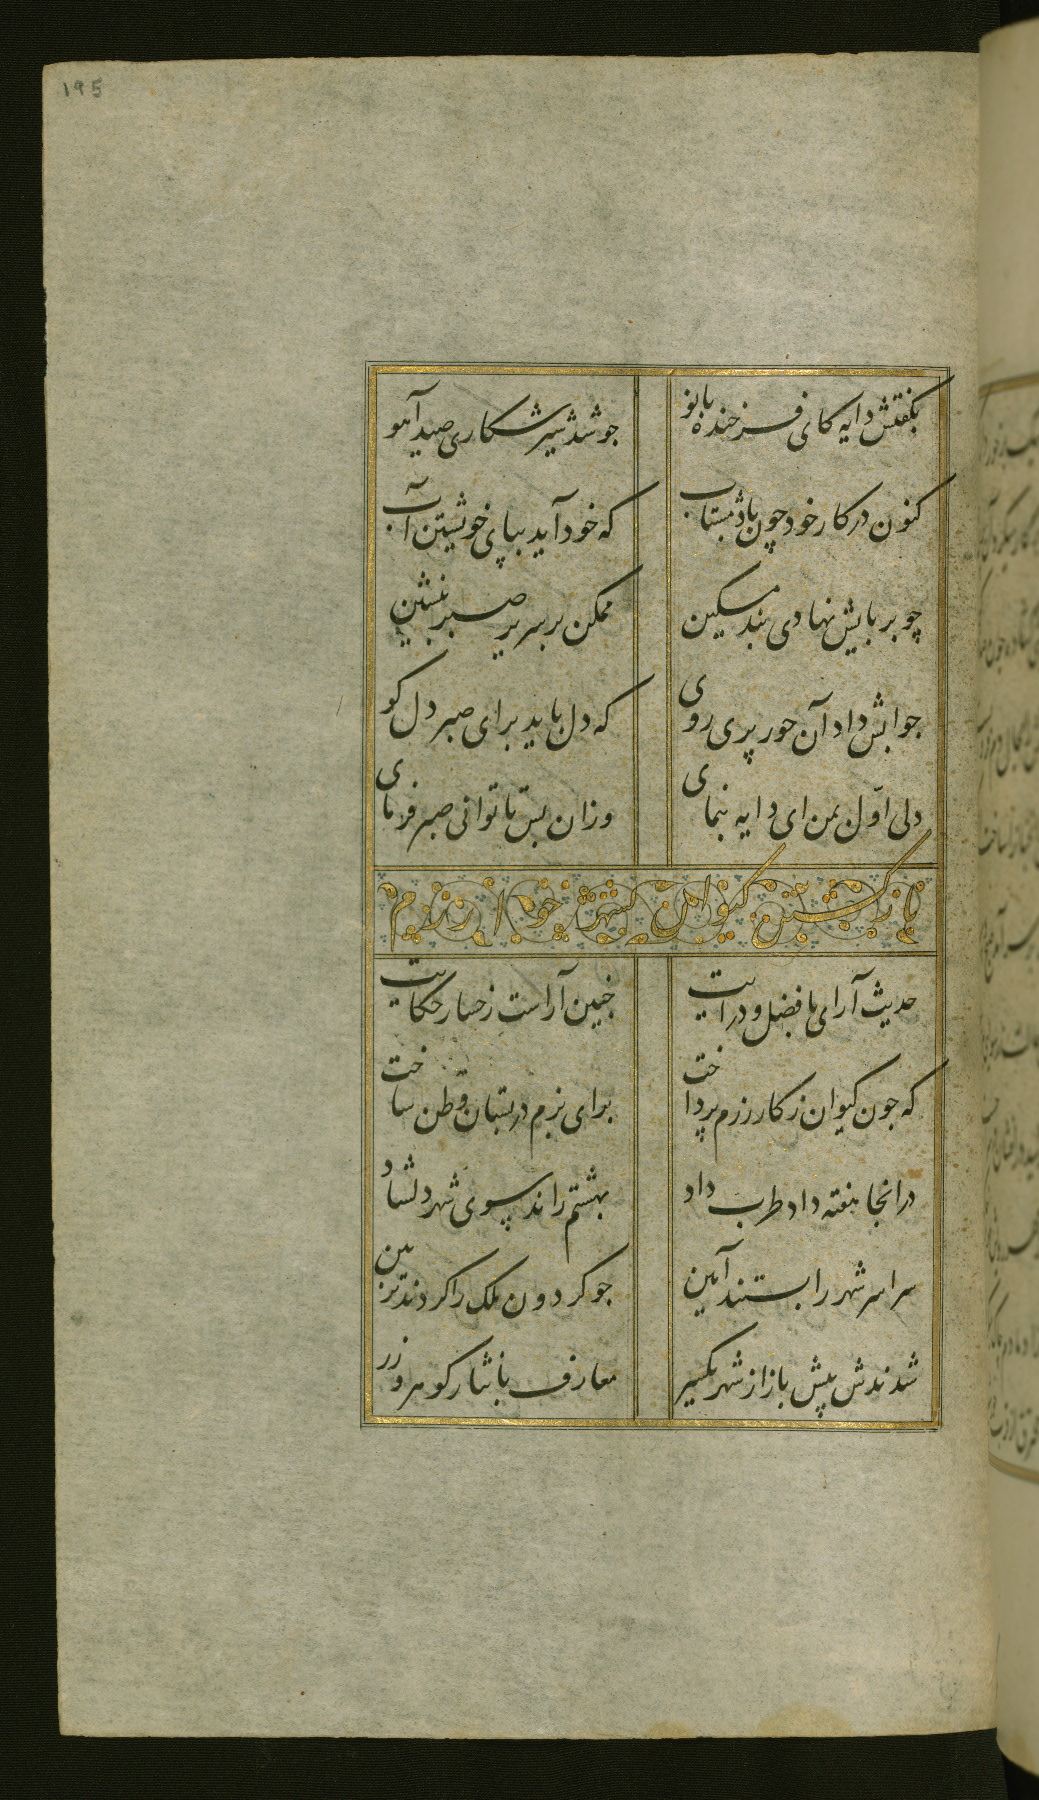 ۱۹۵
بکفتش دایه کای فرخنده بانو
جو شد شیر شکاری صید آهو
کنون در کار خود چون باد مشتاب
که خود آید بپای خویشتن آب
چو بر بایش نهادی بند مسکین
ممکن بر سریر صبر بنشین
جوابش داد آن حور پری روی
که دل باید برای صبر دل کو
دلی اوّل بمن ای دایه بنمای
وزان بس تا توانی صبر فرمای
باز کشتن کیوان بشهر خود از رزم
حدیث آرای با فضل و درایت
خبین آراست رخسار حکایت
که جون کیوان ز کار رزم پرداخت
برای بزم در بستان وطن ساخت
در انجا هفته داد طرب داد
بهشتم راند سوی شهر دلشاد
سراسر شهر را بستند آیین
جو کردون ملک را کردند تزیین
شدندش پیش باز از شهر یکسر
معارف با نثار کوهر و زر